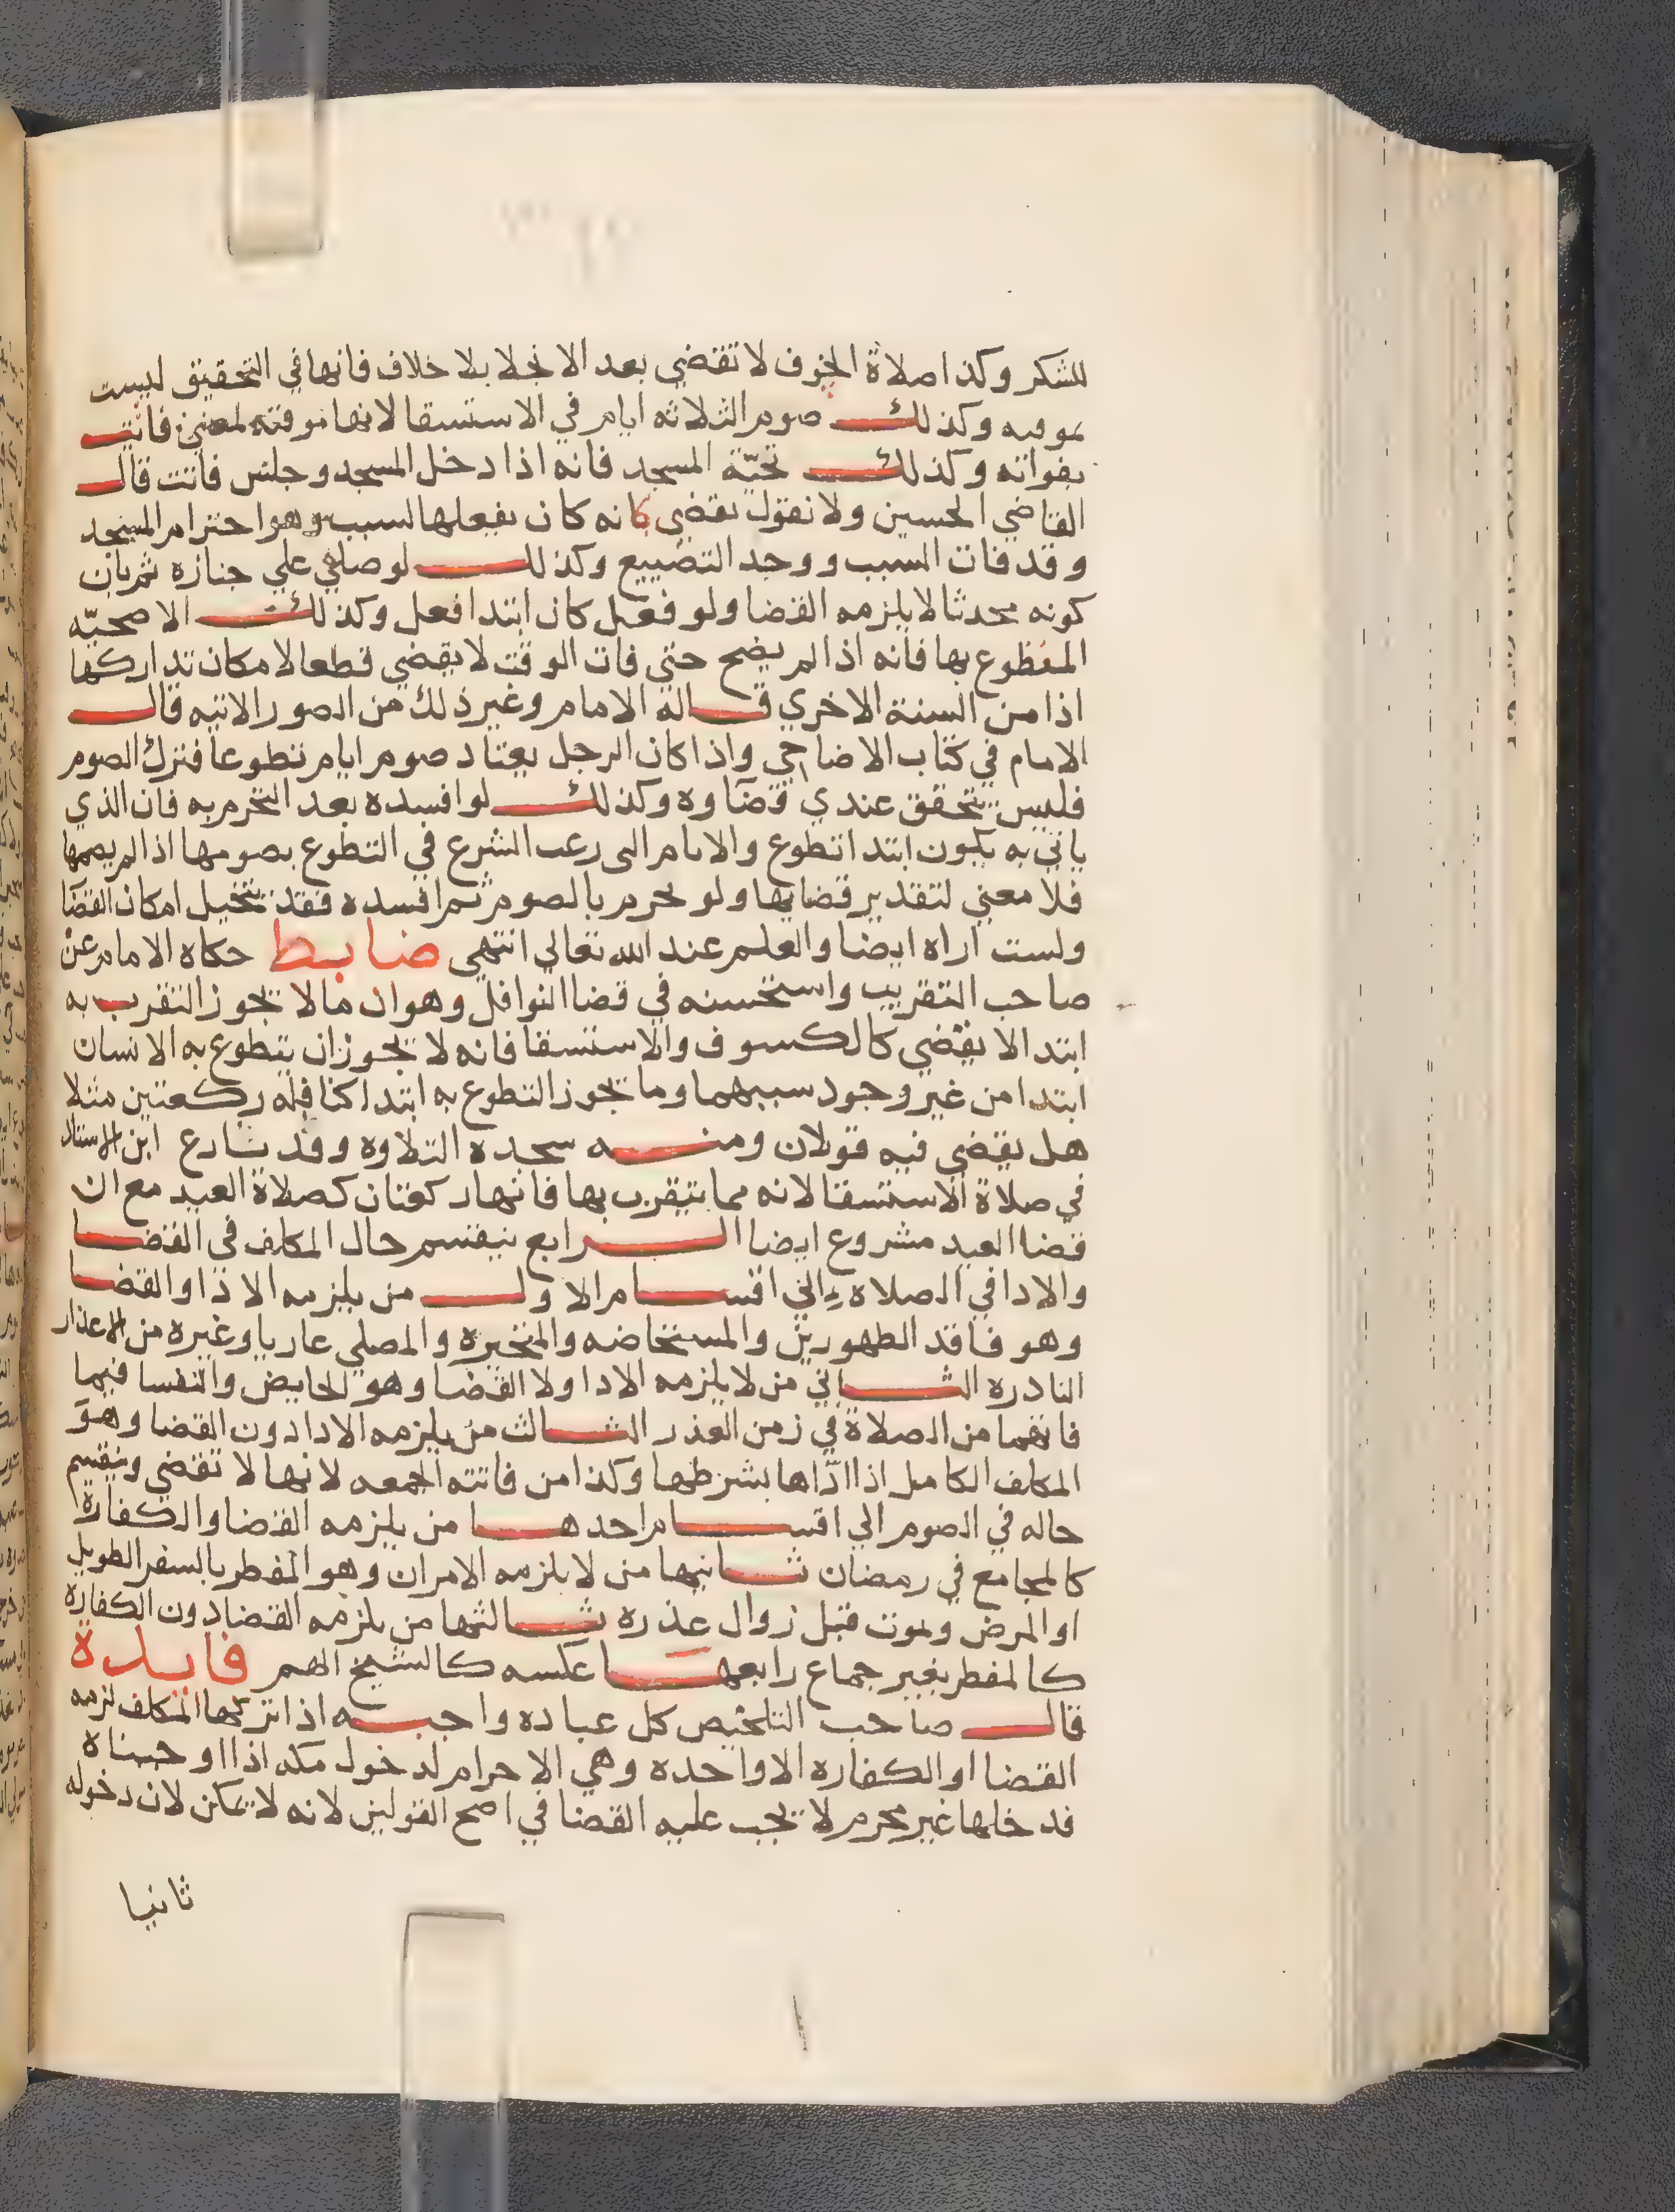 للشكر وكذا صلاة الخوف لا تقضي بعد الانجلا بلا خلاف فانها في التحقيق ليست
بموقته وكذلك صوم الثلاثه ايام في الاستسقا لانها موقته لمعنين فاتت
بفواته وكذلك تحيّة المسجد فانه اذا دخل المسجد وجلس فاتت قال
القاضي الحسين ولا نقول يقضي كانه كان يفعلها لسبب وهو احترام المسجد
وقد فات السبب ووجد التضييع وكذلك لو صلي علي جنازه ثم بان
كونه محدثا لا يلزمه القضا ولو فعل كان ابتدا فعل وكذلك الاضحيّه
المتطوع بها فانه اذا لم يضح حتي فات الوقت لا يقضي قطعا لامكان تداركها
اذا من السنة الاخري قاله الامام وغير ذلك من الصور الاتيه قال
الامام في كتاب الاضاحي واذا كان الرجل يعتاد صوم ايام تطوعا فترك الصوم
فليس يتحقق عندي قضاوه وكذلك لو افسده بعد التحرم به فان الذي
ياتي به يكون ابتدا تطوع والايام التي رغب الشرع في التطوع بصومها اذا لم يصمها
فلا معني لتقدير قضايها ولو تحرم بالصوم ثم افسده فقد يتخيل امكان القضا
ولست اراه ايضا والعلم عند الله تعالي انتهي ضابط حكاه الامام عن
صاحب التقريب واستحسنه في قضا النوافل وهو ان ما لا يجوز التقرب به
ابتدا لا يقضي كالكسوف والاستسقا فانه لا يجوز ان يتطوع به الانسان
ابتدا من غير وجود سببهما وما يجوز التطوع به ابتدا كنافله ركعتين مثلا
هل يقضي فيه قولان ومنه سجده التلاوه وقد نازع ابن الاستاد
في صلاة الاستسقا لانه مما يتقرب بها فانها ركعتان كصلاة العيد مع ان
قضا العيد مشروع ايضا الرابع ينقسم حال المكلف في القضا
والادا في الصلاه الي اقسام الاول من يلزمه الادا والقضا
وهو فاقد الطهورين والمستحاضه والمتحيره والمصلي عاريا وغيره من الاعذار
النادره الثاني من لا يلزمه الادا ولا القضا وهو الحايض والنفسا فيما
فاتهما من الصلاة في زمن العذر الثالث من يلزمه الادا دون القضا وهو
المكلف الكامل اذا ادّاها بشرطها وكذا من فاتته الجمعه لانها لا تقضي وينقسم
حاله في الصوم الي اقسام احدها من يلزمه القضا والكفارة
كالمجامع في رمضان ثانيها من لا يلزمه الامران وهو المفطر بالسفر الطويل
او المرض ويموت قبل زوال عذره ثالثها من يلزمه القضا دون الكفاره
كالمفطر بغير جماع رابعها عكسه كالشيخ الهم فايدة
قال صاحب التلخيص كل عباده واجبه اذا تركها المكلف لزمه
القضا او الكفاره الا واحده وهي الاحرام لدخول مكه اذا اوجبناه
فدخلها غير محرم لا يجب عليه القضا في اصح القولين لانه لا يمكن لان دخوله
ثانيا